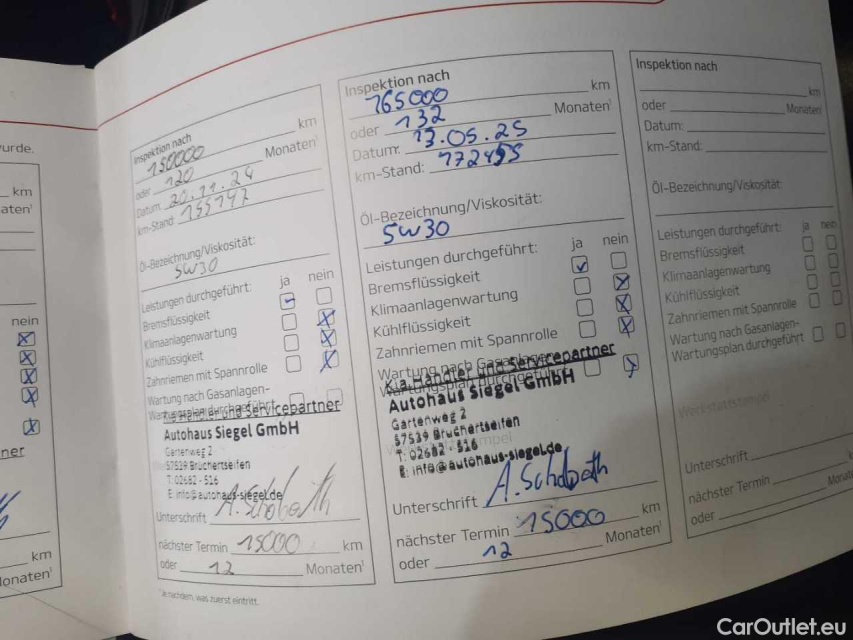 wurde.
km
aten¹
nein
ner
km
Monaten¹
Inspektion nach
150000 km
oder 120 Monaten¹
Datum: 20.11.24
km-Stand: 155147
Öl-Bezeichnung/Viskosität:
5W30
Leistungen durchgeführt: ja nein
Bremsflüssigkeit
Klimaanlagenwartung
Kühlflüssigkeit
Zahnriemen mit Spannrolle
Wartung nach Gasanlagen-
Wartungsplan durchgeführt
Kia Händler und Servicepartner
Autohaus Siegel GmbH
Gartenweg 2
57539 Bruchertseifen
T: 02682 - 516
E: info@autohaus-siegel.de
Unterschrift
nächster Termin 15000 km
oder 12 Monaten¹
¹ Je nachdem, was zuerst eintritt.
Inspektion nach
165000 km
oder 132 Monaten¹
Datum: 13.05.25
km-Stand: 172495
Öl-Bezeichnung/Viskosität:
5W30
Leistungen durchgeführt: ja nein
Bremsflüssigkeit
Klimaanlagenwartung
Kühlflüssigkeit
Zahnriemen mit Spannrolle
Wartung nach Gasanlagen-
Wartungsplan durchgeführt
Kia Händler und Servicepartner
Autohaus Siegel GmbH
Gartenweg 2
57539 Bruchertseifen
T: 02682 - 516
E: info@autohaus-siegel.de
Unterschrift
nächster Termin 15000 km
oder 12 Monaten¹
Inspektion nach
km
oder Monaten¹
Datum:
km-Stand:
Öl-Bezeichnung/Viskosität:
Leistungen durchgeführt: ja nein
Bremsflüssigkeit
Klimaanlagenwartung
Kühlflüssigkeit
Zahnriemen mit Spannrolle
Wartung nach Gasanlagen-
Wartungsplan durchgeführt
Werkstattstempel
Unterschrift
nächster Termin
oder Monat
CarOutlet.eu